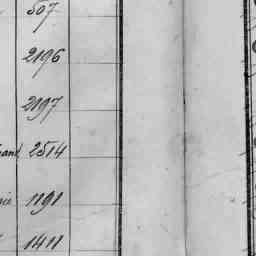 507
2196
2197
2514
1191
1411